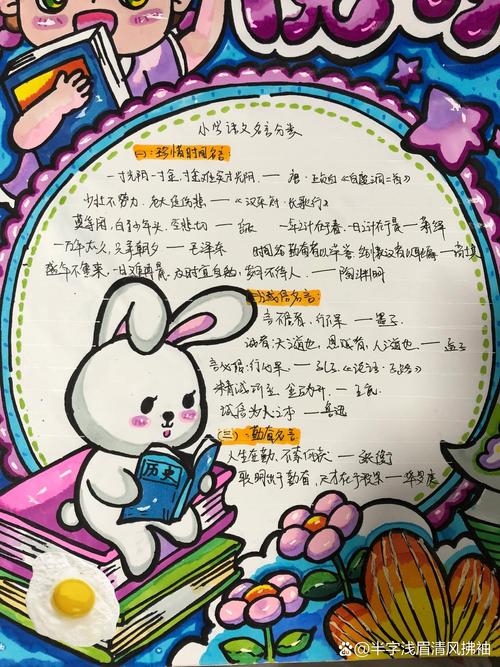 小学语文名言分类
(一):珍惜时间名言
一寸光阴一寸金,寸金难买寸光阴。——唐·王贞白《白鹿洞二首》
少壮不努力,老大徒伤悲——《汉乐府·长歌行》
莫等闲,白了少年头,空悲切——岳飞 一年之计在于春,一日之计在于晨——萧绎
一万年太久,只争朝夕——毛泽东 时间给勤奋者以
盛年不重来,一日难再晨,及时宜自勉,岁月不待人。——陶渊明
诚信名言:
言不信者,行不果——墨子
诚者,天之道也,思诚者,人之道也——孟子
言必信,行必果——孔子《论语·子路》
精诚所至,金石为开——王充
诚信为人之本——鲁迅
(三):勤奋名言
人生在勤,不索何获——张衡
聪明出于勤奋,天才在于积累——华罗庚
历史
半字浅眉清风拂袖